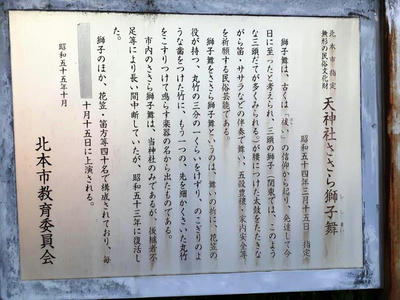 北本市指定
無形の民俗文化財
天神社ささら獅子舞
昭和五十四年三月十五日 指定
獅子舞は、古くは「祓い」の信仰から起り、発達して今
日に至ったと考えられ、三頭の獅子(関東では、このよう
な三頭だてが多くみられる)が腰につけた太鼓をたたきな
がら笛、ササラなどの伴奏で舞い、五穀豊穣・家内安全等
を祈願する民俗芸能である。
獅子舞をささら獅子舞というのは、舞いの折に、花笠の
役が持つ、丸竹の二分の一くらいをけずり、のこぎりのよ
うな歯をつけた竹に、もう一つの、先を細かくさいた丸竹
をこすりつけて鳴らす楽器の名から出たものである。
市内のささら獅子舞は、当神社のみであるが、後継者不
足等により長い間中断していたが、昭和五十三年に復活し
た。
獅子のほか、花笠・笛方等四十名で構成されており、毎
十月十五日に上演される。
昭和五十五年十月
北本市教育委員会